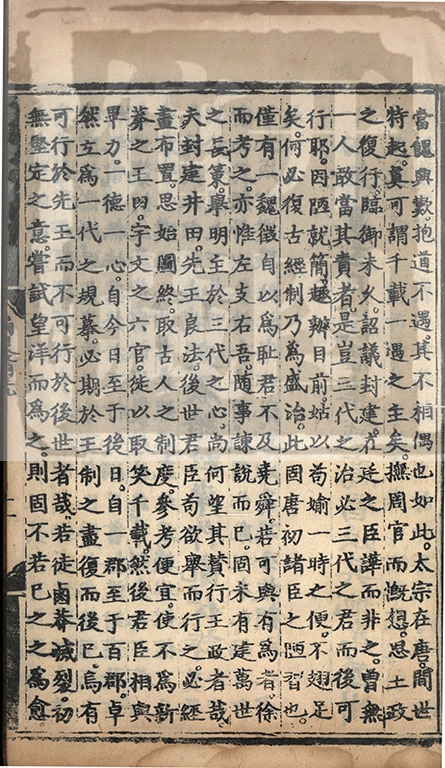 當饋興歎抱道不遇其不相偶也如此太宗在唐間世
特起真可謂千載一遇之主矣撫周官而慨想思土政
之復行臨御未久詔議封建在廷之臣譁而非之曽無
一人敢當其責者是豈三代之治必三代之君而後可
行耶因陋就簡趣辦目前姑以茍媮一時之便不翅足
矣何必復古經制乃為盛治此固唐初諸臣之陋習也
僅有一魏徵自以為耻君不及堯舜若可與有為者徐
而考之亦惟左支右吾随事諫說而已固未有建萬世
之長策舉明主於三代之心尚何望其賛行王政者哉
夫封建井田先王良法後世君臣苟欲舉而行之必經
畫布置思始圖終取古人之制度參考便宜使不為新
莽之王田宇文之六官徒以取笑千載然後君臣相與
畢力一德一心自今日至于後日自一郡至于百郡卓
然立為一代之規摹必期於王制之盡復而後已烏有
可行於先王而不可行於後世者哉若徒鹵莽滅裂初
無堅定之意嘗試皇洋而為之則固不若已之之為愈